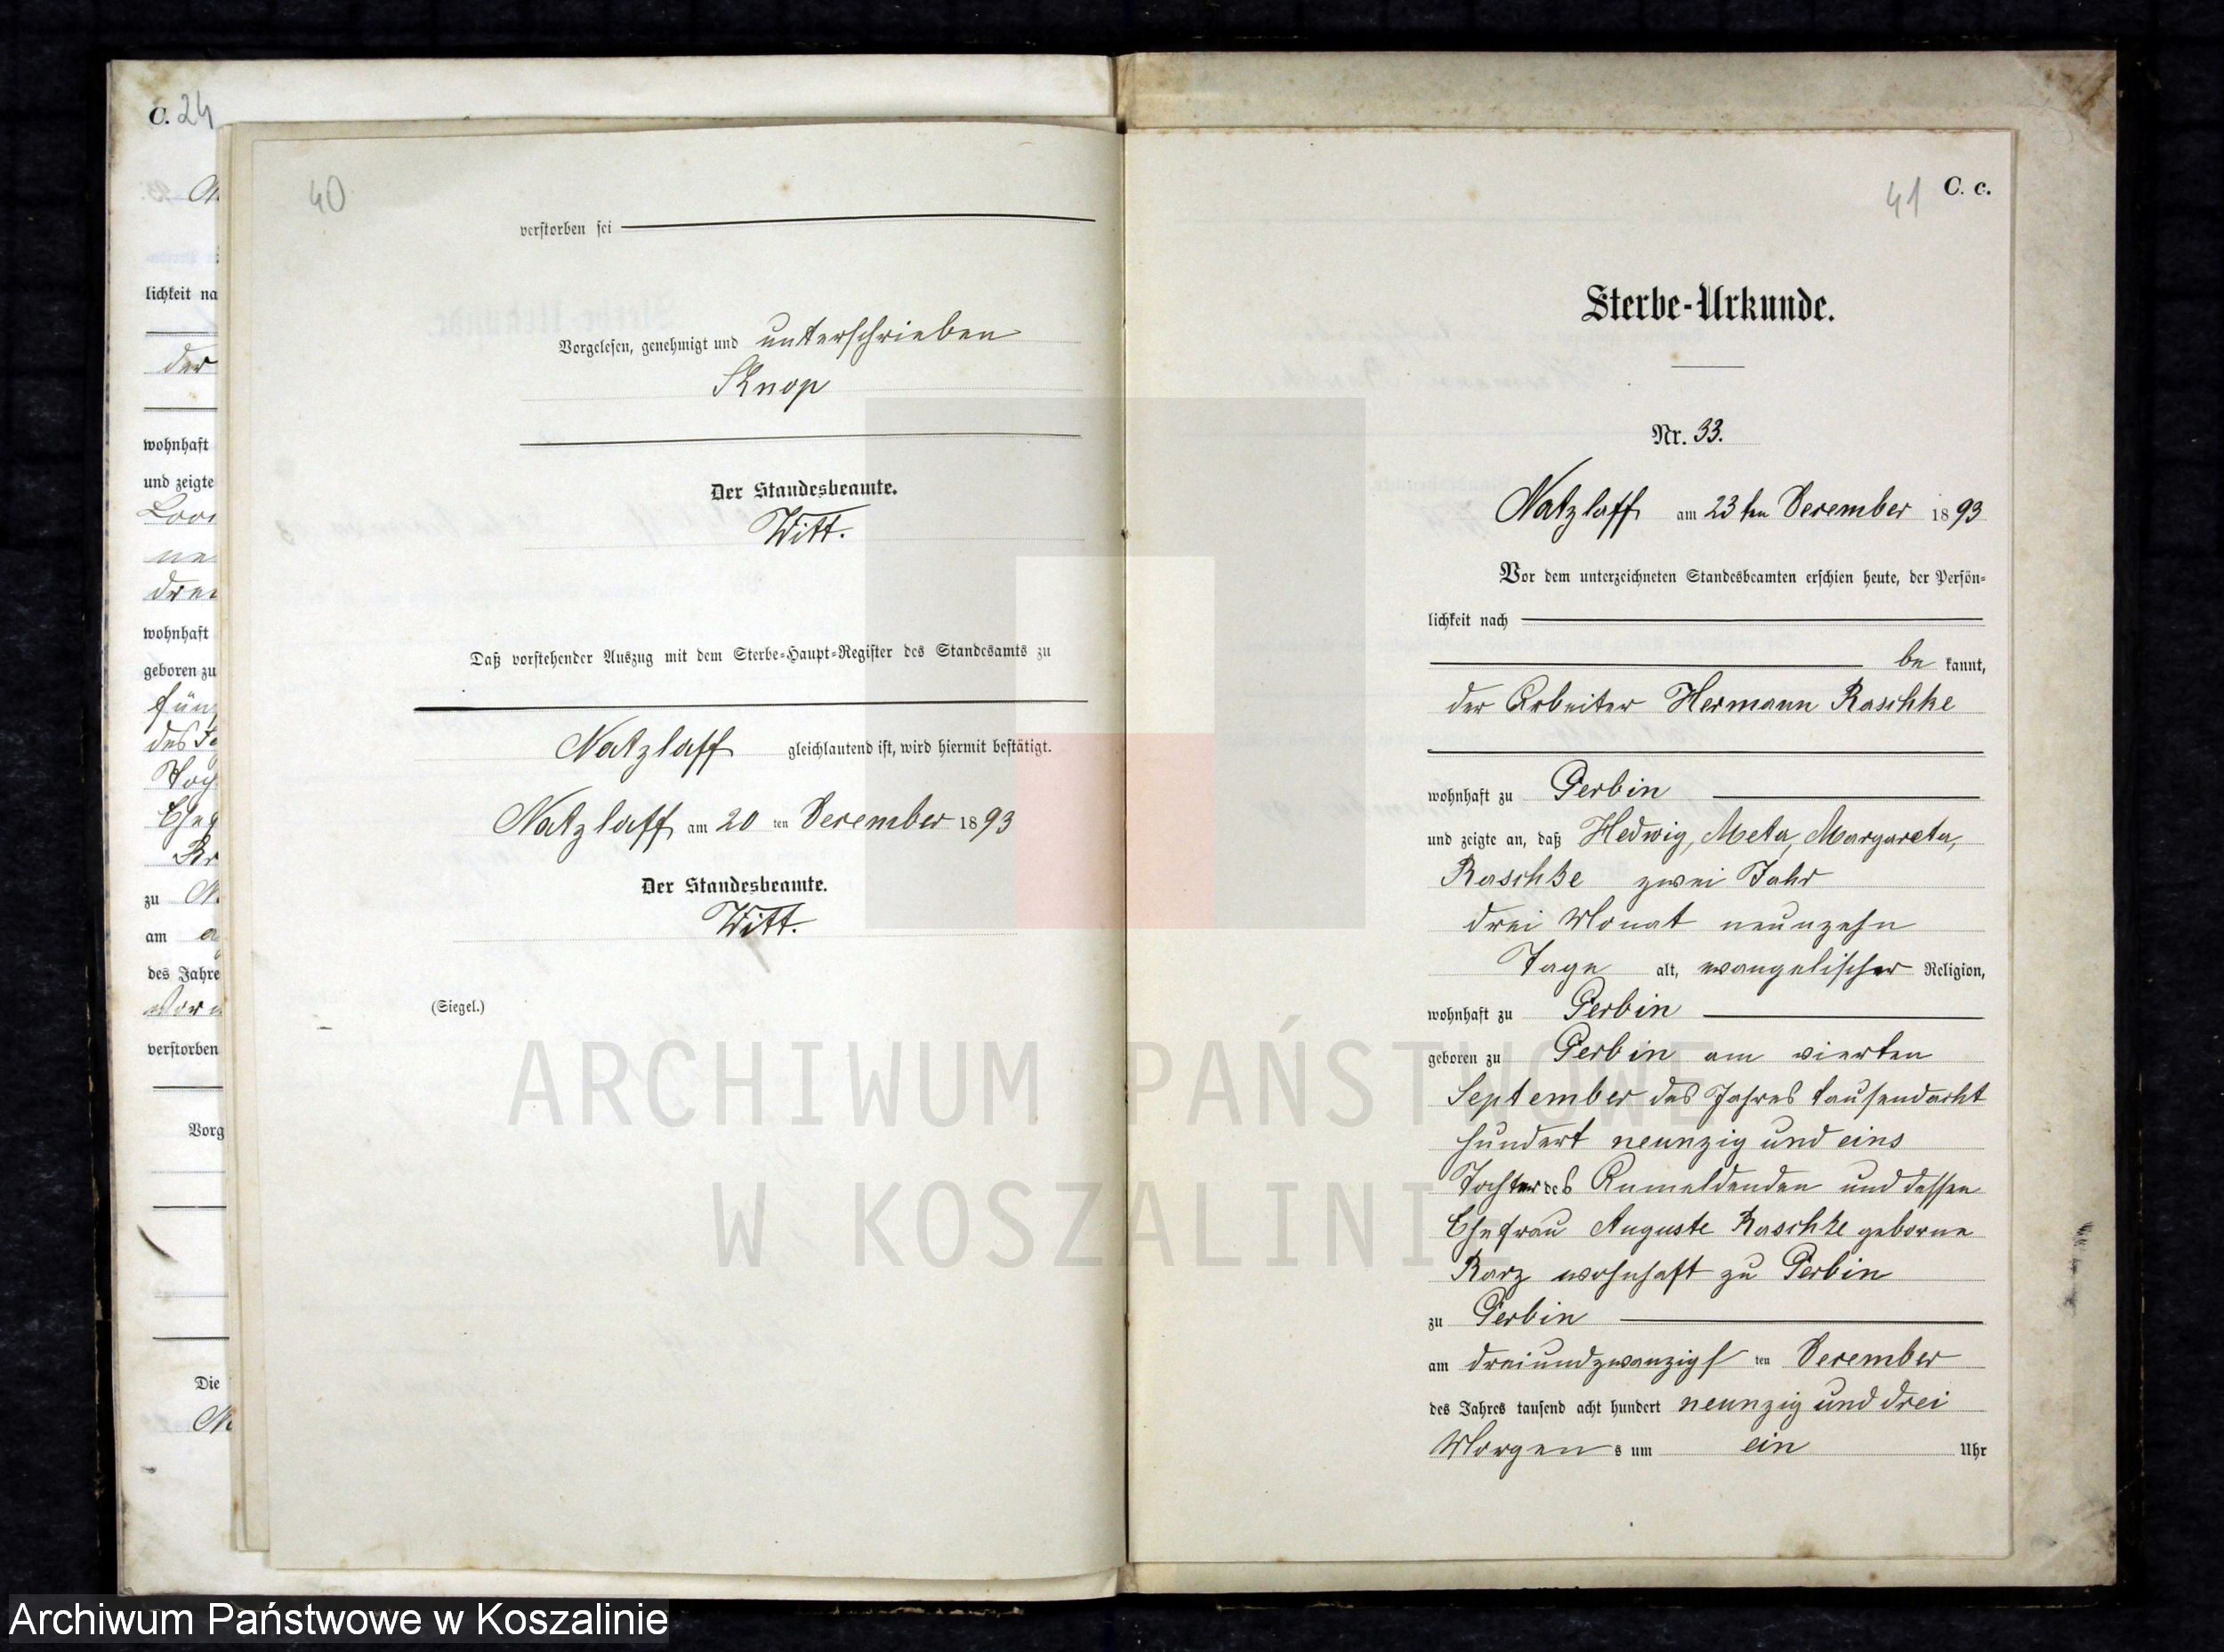 C. 24
lichkeit na
der
wohnhaft
und zeigte
drei
wohnhaft
geboren zu
des
zu
am
des Jahre
verstorben
Vorg
Die
40
verstorben sei
Vorgelesen, genehmigt und unterschrieben
Knop
Der Standesbeamte.
Witt.
Daß vorstehender Auszug mit dem Sterbe-Haupt-Register des Standesamts zu
Natzlaff gleichlautend ist, wird hiermit bestätigt.
Natzlaff am 20 ten December 1893
Der Standesbeamte.
Witt.
(Siegel.)
41 C. c.
Sterbe-Urkunde.
Nr. 33.
Natzlaff am 23 ten December 1893
Vor dem unterzeichneten Standesbeamten erschien heute, der Persön-
lichkeit nach
be kannt,
der Arbeiter Hermann Raschke
wohnhaft zu Gerbin
und zeigte an, daß Hedwig, Meta, Margareta,
Raschke zwei Jahr
drei Monat neunzehn
Tage alt, evangelischer Religion,
wohnhaft zu Gerbin
geboren zu Gerbin am vierten
September des Jahres tausendacht
hundert neunzig und eins
Tochter des Anmeldenden und dessen
Ehefrau Auguste Raschke geborne
Karz wohnhaft zu Gerbin
zu Gerbin
am dreiundzwanzigs ten December
des Jahres tausend acht hundert neunzig und drei
Morgen s um ein Uhr
ARCHIWUM PAŃSTWOWE
W KOSZALINIE
Archiwum Państwowe w Koszalinie